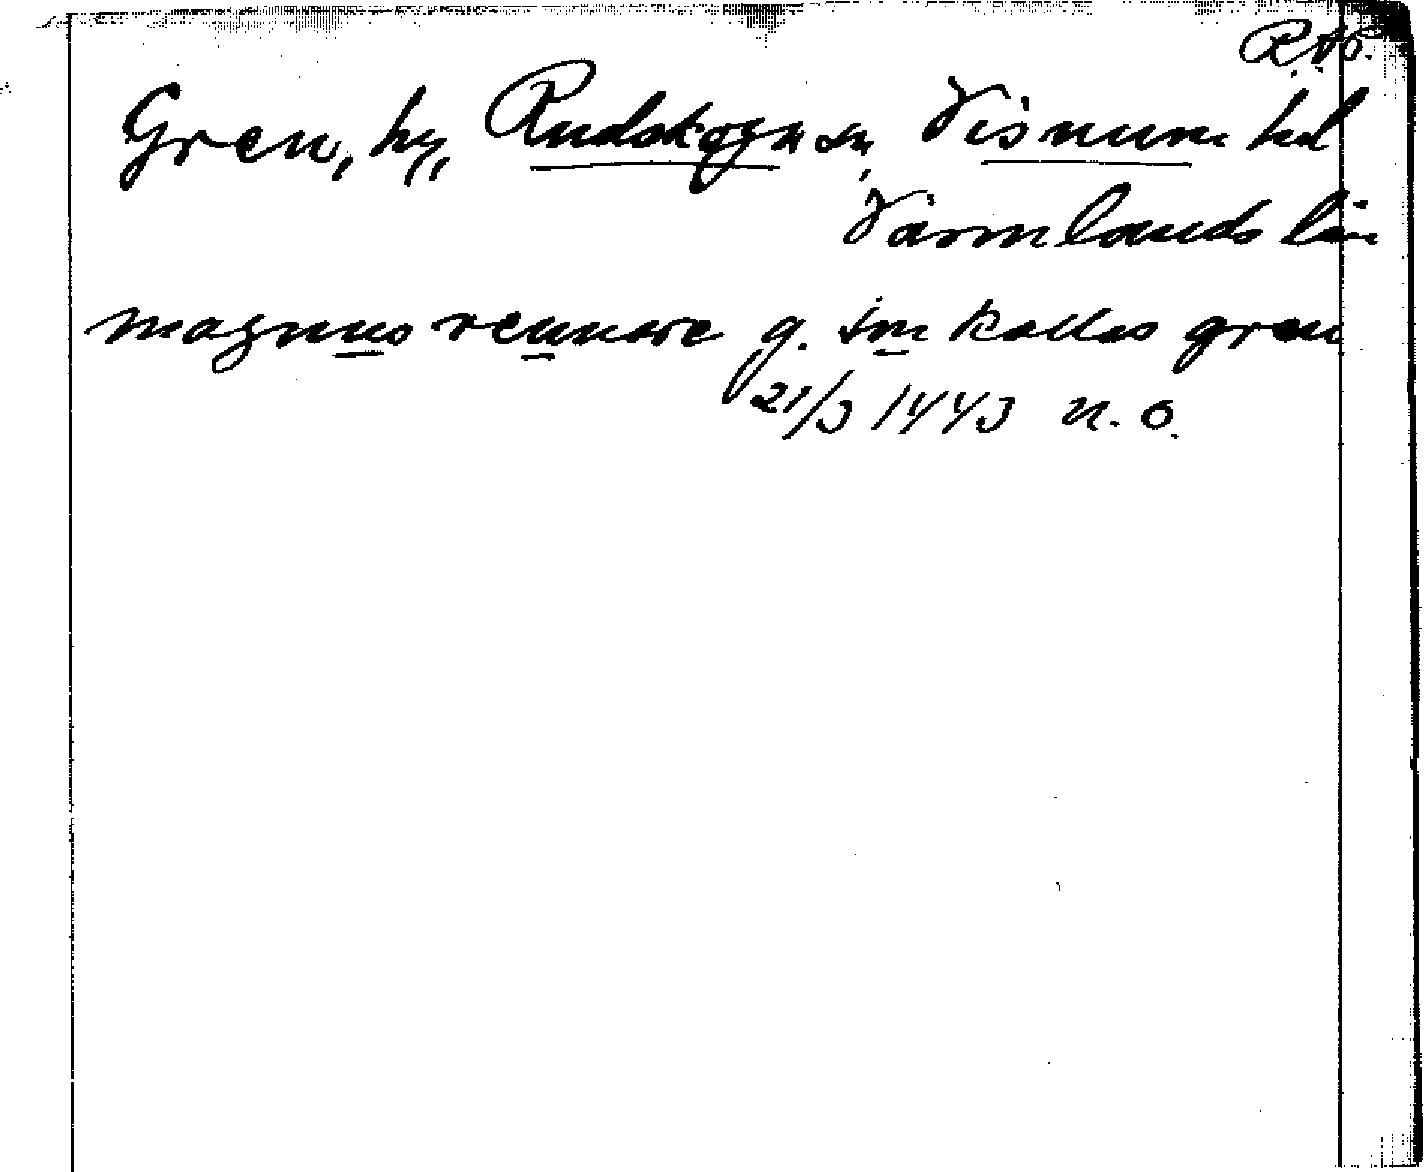 R.A.P.
Gren, by, Rudskoga sn, Visnums hd
Värmlands län
magnus rennare g. sm kallas gren
21/3 1443 n. o.